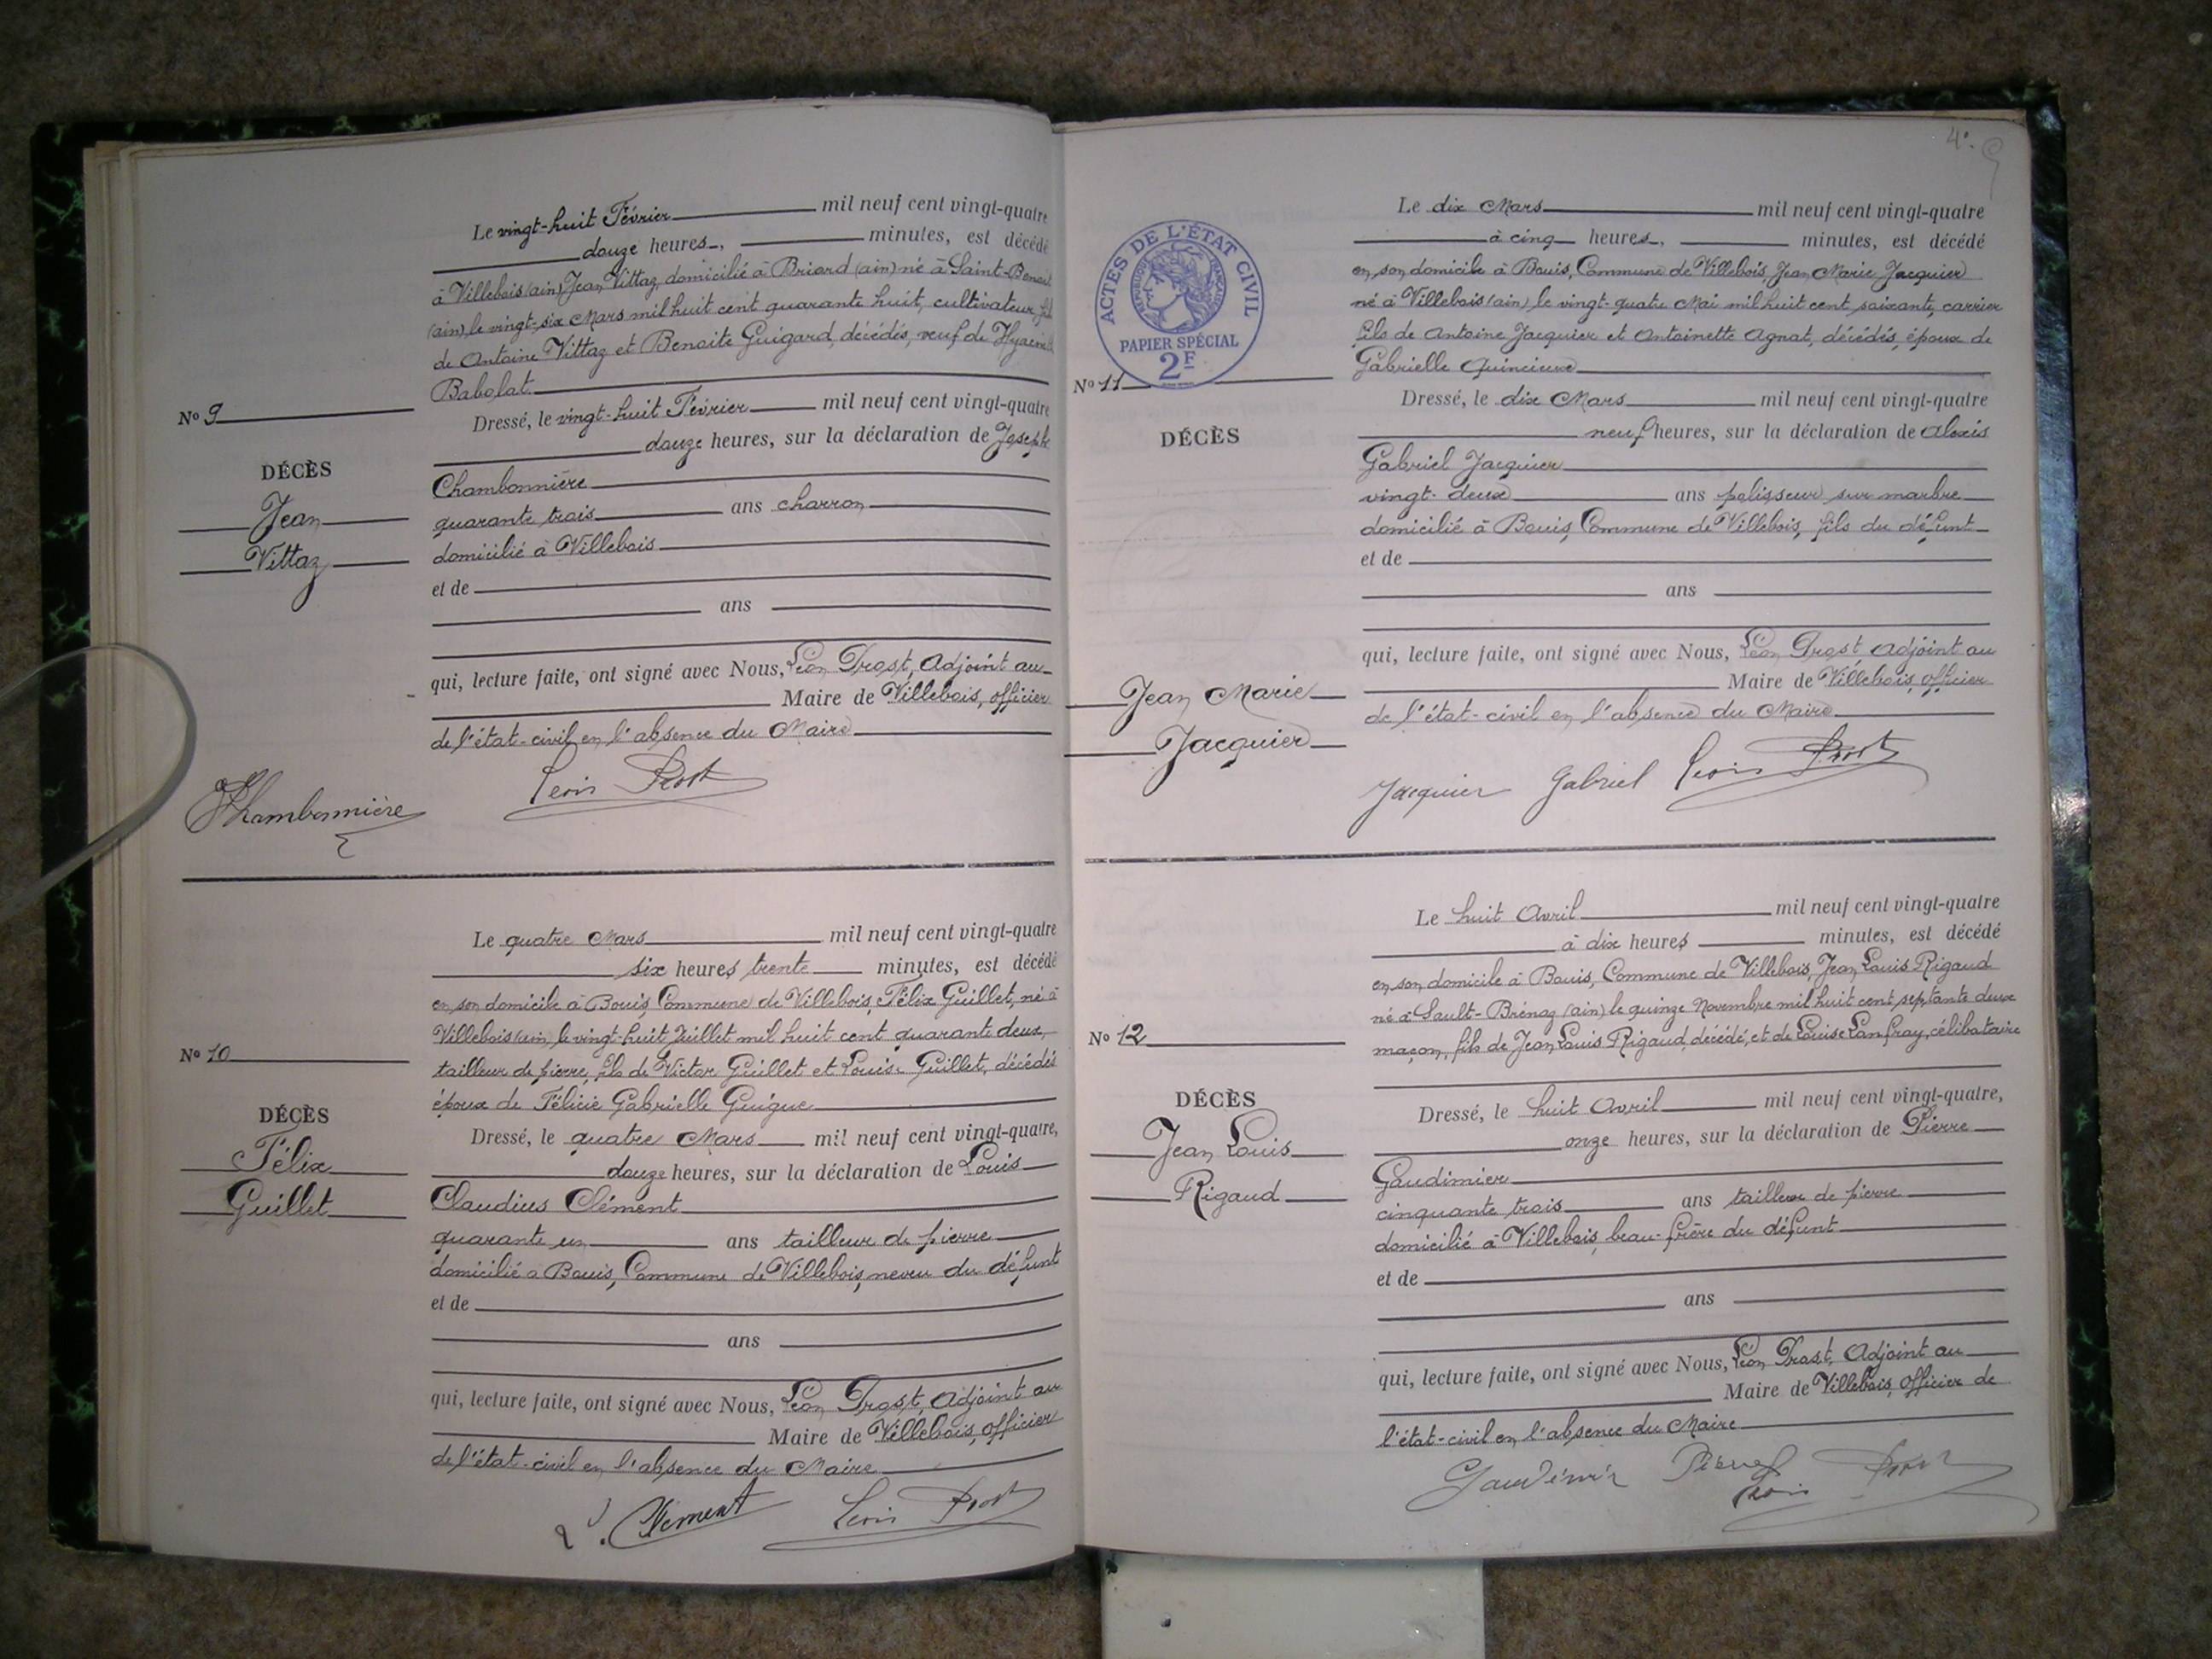 Le vingt-huit Février mil neuf cent vingt-quatre
douze heures, minutes, est décédé
à Villebois (ain) Jean Vittaz, domicilié à Briord (ain) né à Saint-Benoit
(ain) le vingt-six Mars mil huit cent quarante huit, cultivateur, fils
de Antoine Vittaz et Benoite Guigard, décédés, veuf de
Babolat
Nº 9
Dressé, le vingt-huit Février mil neuf cent vingt-quatre
douze heures, sur la déclaration de Joseph
DÉCÈS
Chambonnière
Jean
quarante trois ans charron
Vittaz
domicilié à Villebois
et de
ans
qui, lecture faite, ont signé avec Nous, Léon Prost, Adjoint au
Maire de Villebois, officier
de l'état-civil en l'absence du Maire
JChambonnière Léon Prost
Le quatre Mars mil neuf cent vingt-quatre
six heures trente minutes, est décédé
en son domicile à Bouis, Commune de Villebois, Félix Guillet, né à
Villebois (ain) le vingt-huit Juillet mil huit cent quarante deux,
Nº 10
tailleur de pierre, fils de Victor Guillet et Louise Guillet, décédés
époux de Félicie Gabrielle Guigue
DÉCÈS
Dressé, le quatre Mars mil neuf cent vingt-quatre,
Félix
douze heures, sur la déclaration de Louis
Guillet
Claudius Clément
quarante un ans tailleur de pierre
domicilié à Bouis, Commune de Villebois, neveu du défunt
et de
ans
qui, lecture faite, ont signé avec Nous, Léon Prost, Adjoint au
Maire de Villebois, officier
de l'état-civil en l'absence du Maire
Clément Léon Prost
4e.
Le dix Mars mil neuf cent vingt-quatre
à cinq heures, minutes, est décédé
en son domicile à Bouis, Commune de Villebois, Jean Marie Jacquier
né à Villebois (ain) le vingt-quatre Mai mil huit cent soixante, carrier
fils de Antoine Jacquier et Antoinette Agnat, décédés, époux de
Gabrielle Quincieux
ACTES DE L'ÉTAT CIVIL
RÉPUBLIQUE FRANÇAISE
PAPIER SPÉCIAL
2F
Nº 11
Dressé, le dix Mars mil neuf cent vingt-quatre
neuf heures, sur la déclaration de Alexis
DÉCÈS
Gabriel Jacquier
vingt-deux ans polisseur sur marbre
domicilié à Bouis, Commune de Villebois, fils du défunt
et de
ans
qui, lecture faite, ont signé avec Nous, Léon Prost Adjoint au
Maire de Villebois, officier
Jean Marie
de l'état-civil en l'absence du Maire
Jacquier
Jacquier Gabriel Léon Prost
Le huit Avril mil neuf cent vingt-quatre
à dix heures minutes, est décédé
en son domicile à Bouis, Commune de Villebois, Jean Louis Rigaud
né à Sault-Brénaz (ain) le quinze Novembre mil huit cent septante deux
Nº 12
maçon, fils de Jean Louis Rigaud, décédé, et de Louise Lanfray, célibataire
DÉCÈS
Dressé, le huit Avril mil neuf cent vingt-quatre,
Jean Louis
onze heures, sur la déclaration de Pierre
Rigaud
Gaudimier
cinquante trois ans tailleur de pierre
domicilié à Villebois, beau-frère du défunt
et de
ans
qui, lecture faite, ont signé avec Nous, Léon Prost, Adjoint au
Maire de Villebois, officier de
l'état-civil en l'absence du Maire
Gaudimier Pierre Léon Prost